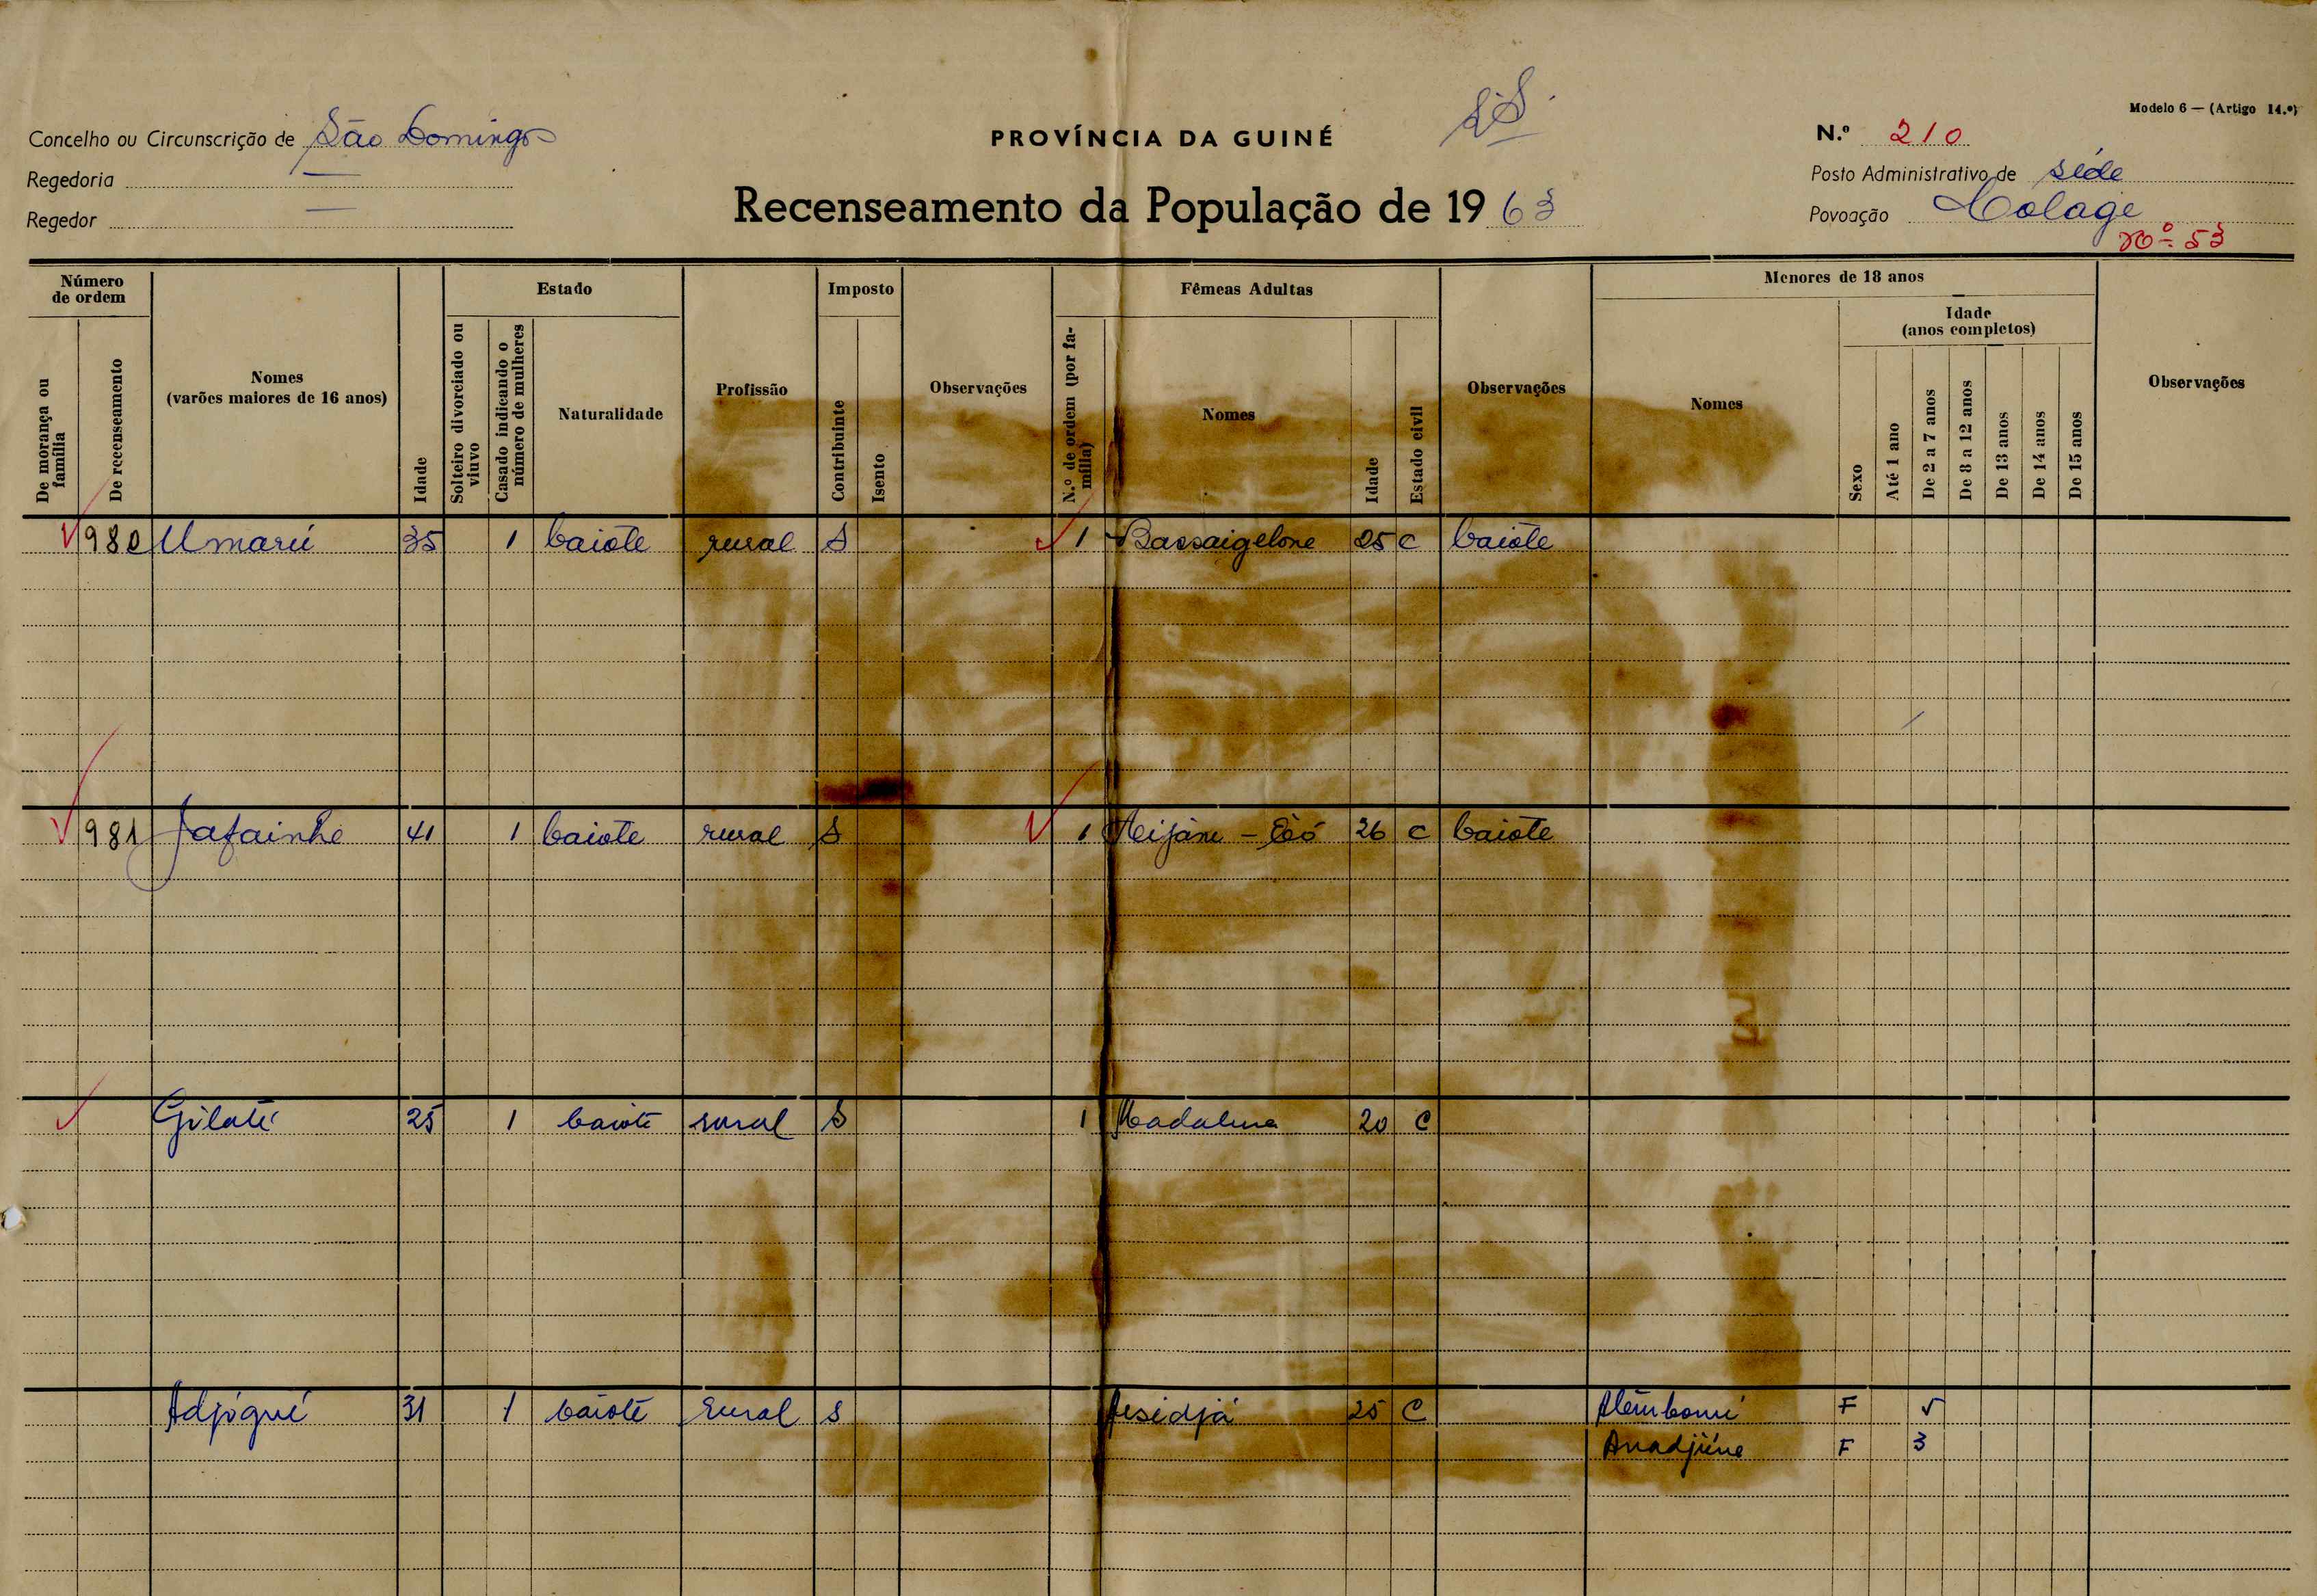 Modelo 6 — (Artigo 14.º)
Concelho ou Circunscrição de São Domingos
PROVÍNCIA DA GUINÉ
N.º 210
Regedoria —
Posto Administrativo de Séde
Regedor —
Recenseamento da População de 19 63
Povoação
Nº 53
Número de ordem
De morança ou família
De recenseamento
Nomes
(varões maiores de 16 anos)
Idade
Estado
Solteiro divorciado ou viuvo
Casado indicando o número de mulheres
Naturalidade
Profissão
Imposto
Contribuinte
Isento
Observações
Fêmeas Adultas
N.º de ordem (por família)
Nomes
Idade
Estado civil
Observações
Menores de 18 anos
Nomes
Sexo
Idade
(anos completos)
Até 1 ano
De 2 a 7 anos
De 8 a 12 anos
De 13 anos
De 14 anos
De 15 anos
Observações
980 Umarú 35 1 baiote rural S 1 Bassaigelone 25 C baiote
981 Jafainhe 41 1 baiote rural S 1 26 C baiote
Gilaté 25 1 baiote rural S 1 Madalena 20 C
Adjógué 31 1 baiote rural S 25 C F
Anadjúne F 3